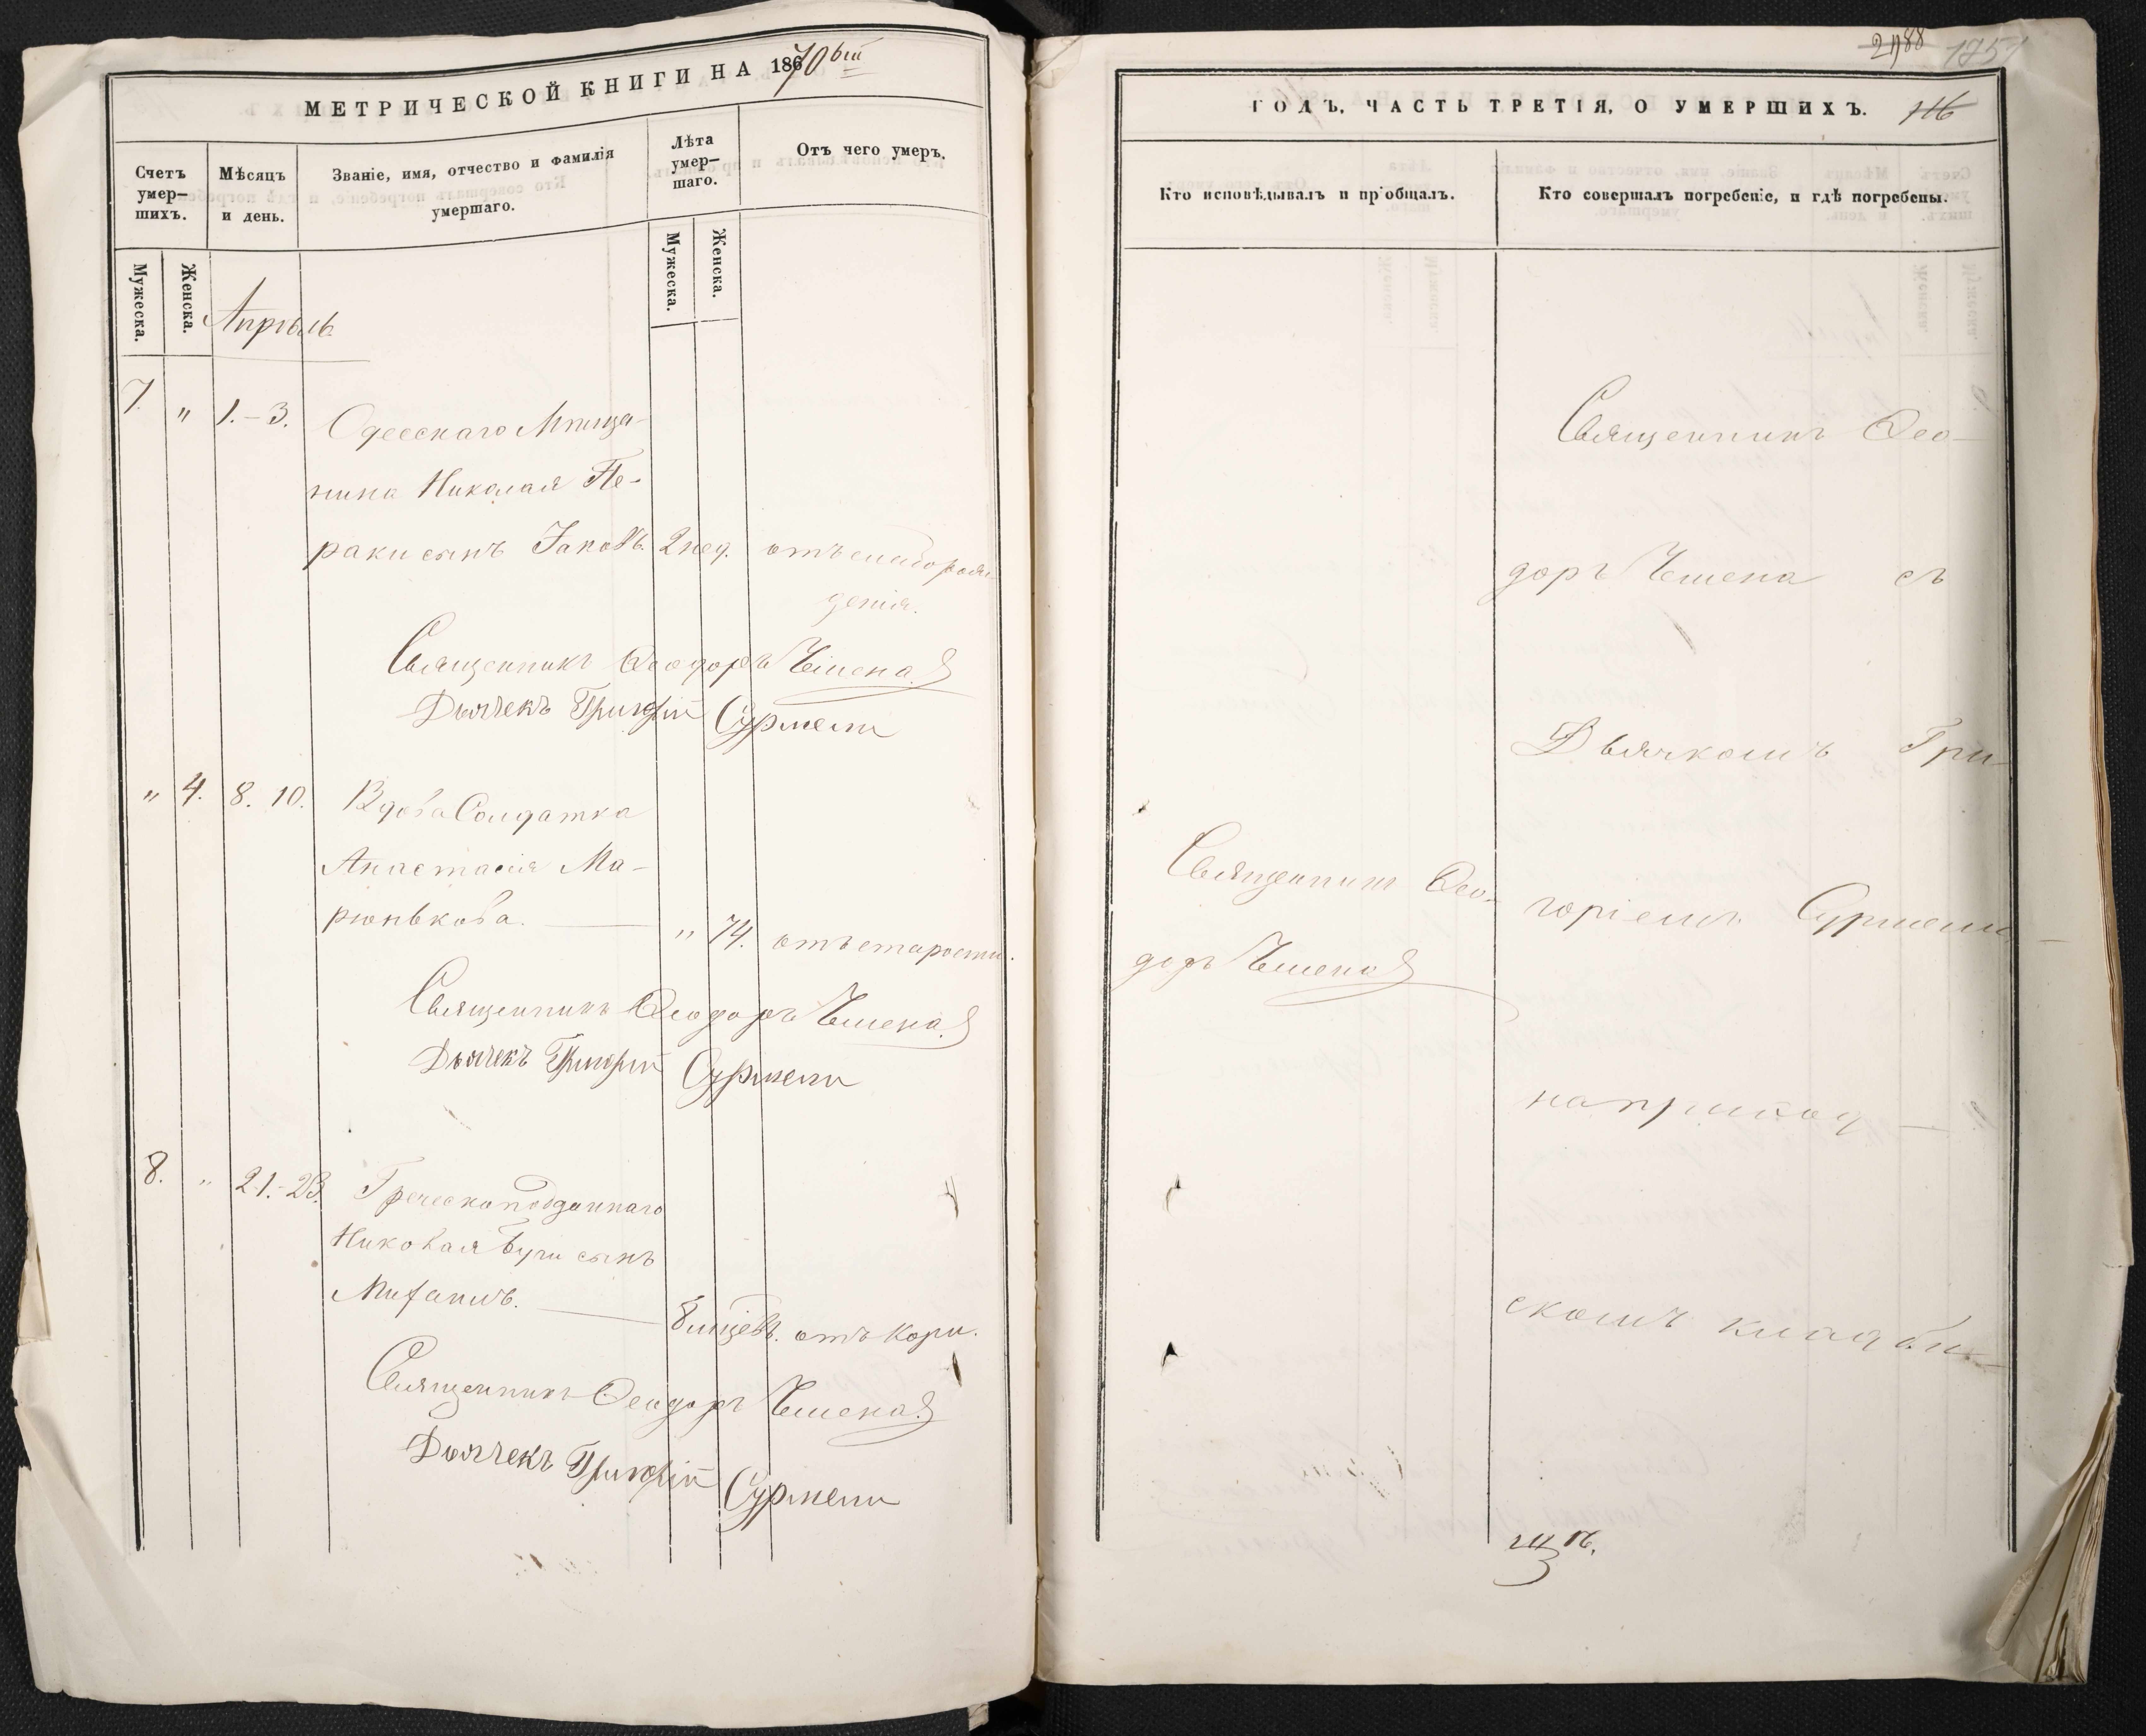 МЕТРИЧЕСКОЙ КНИГИ НА 1870ый
Счетъ умер-шихъ.
Мѣсяцъ и день.
Званіе, имя, отчество и фамилія умершаго.
Лѣта умер-шаго.
Отъ чего умеръ.
Мужеска.
Женска.
Мужеска.
Женска.
Апрѣль
7. " 1.-3. Одесскаго Мѣща-
нина Николая Пе-
раки сынъ Іаковъ. 2 нед. отъ слаборож-
денія.
Священникъ Ѳеодоръ Чешена
Дьячекъ Григорій Сурмели
" 4. 8. 10. Вдова Солдатка
Анастасія Ма-
рюнькова. " 74. отъ старости.
Священникъ Ѳеодоръ Чешена
Дьячекъ Григорій Сурмели
8. " 21.-23. Греческоподданнаго
Николая сынъ
8 мцевъ. отъ кори.
Священникъ Ѳеодоръ Чешена
Дьячекъ Григорій Сурмели
2988
1751
ГОДЪ, ЧАСТЬ ТРЕТІЯ, О УМЕРШИХЪ. 116
Кто исповѣдывалъ и пріобщалъ.
Кто совершалъ погребеніе, и гдѣ погребены.
Священникъ Ѳео-
доръ Чешена
Священникъ Ѳео-
доръ Чешена съ
Дьячкомъ Гри-
горіемъ Сурмели
на приход-
скомъ кладби-
щѣ.